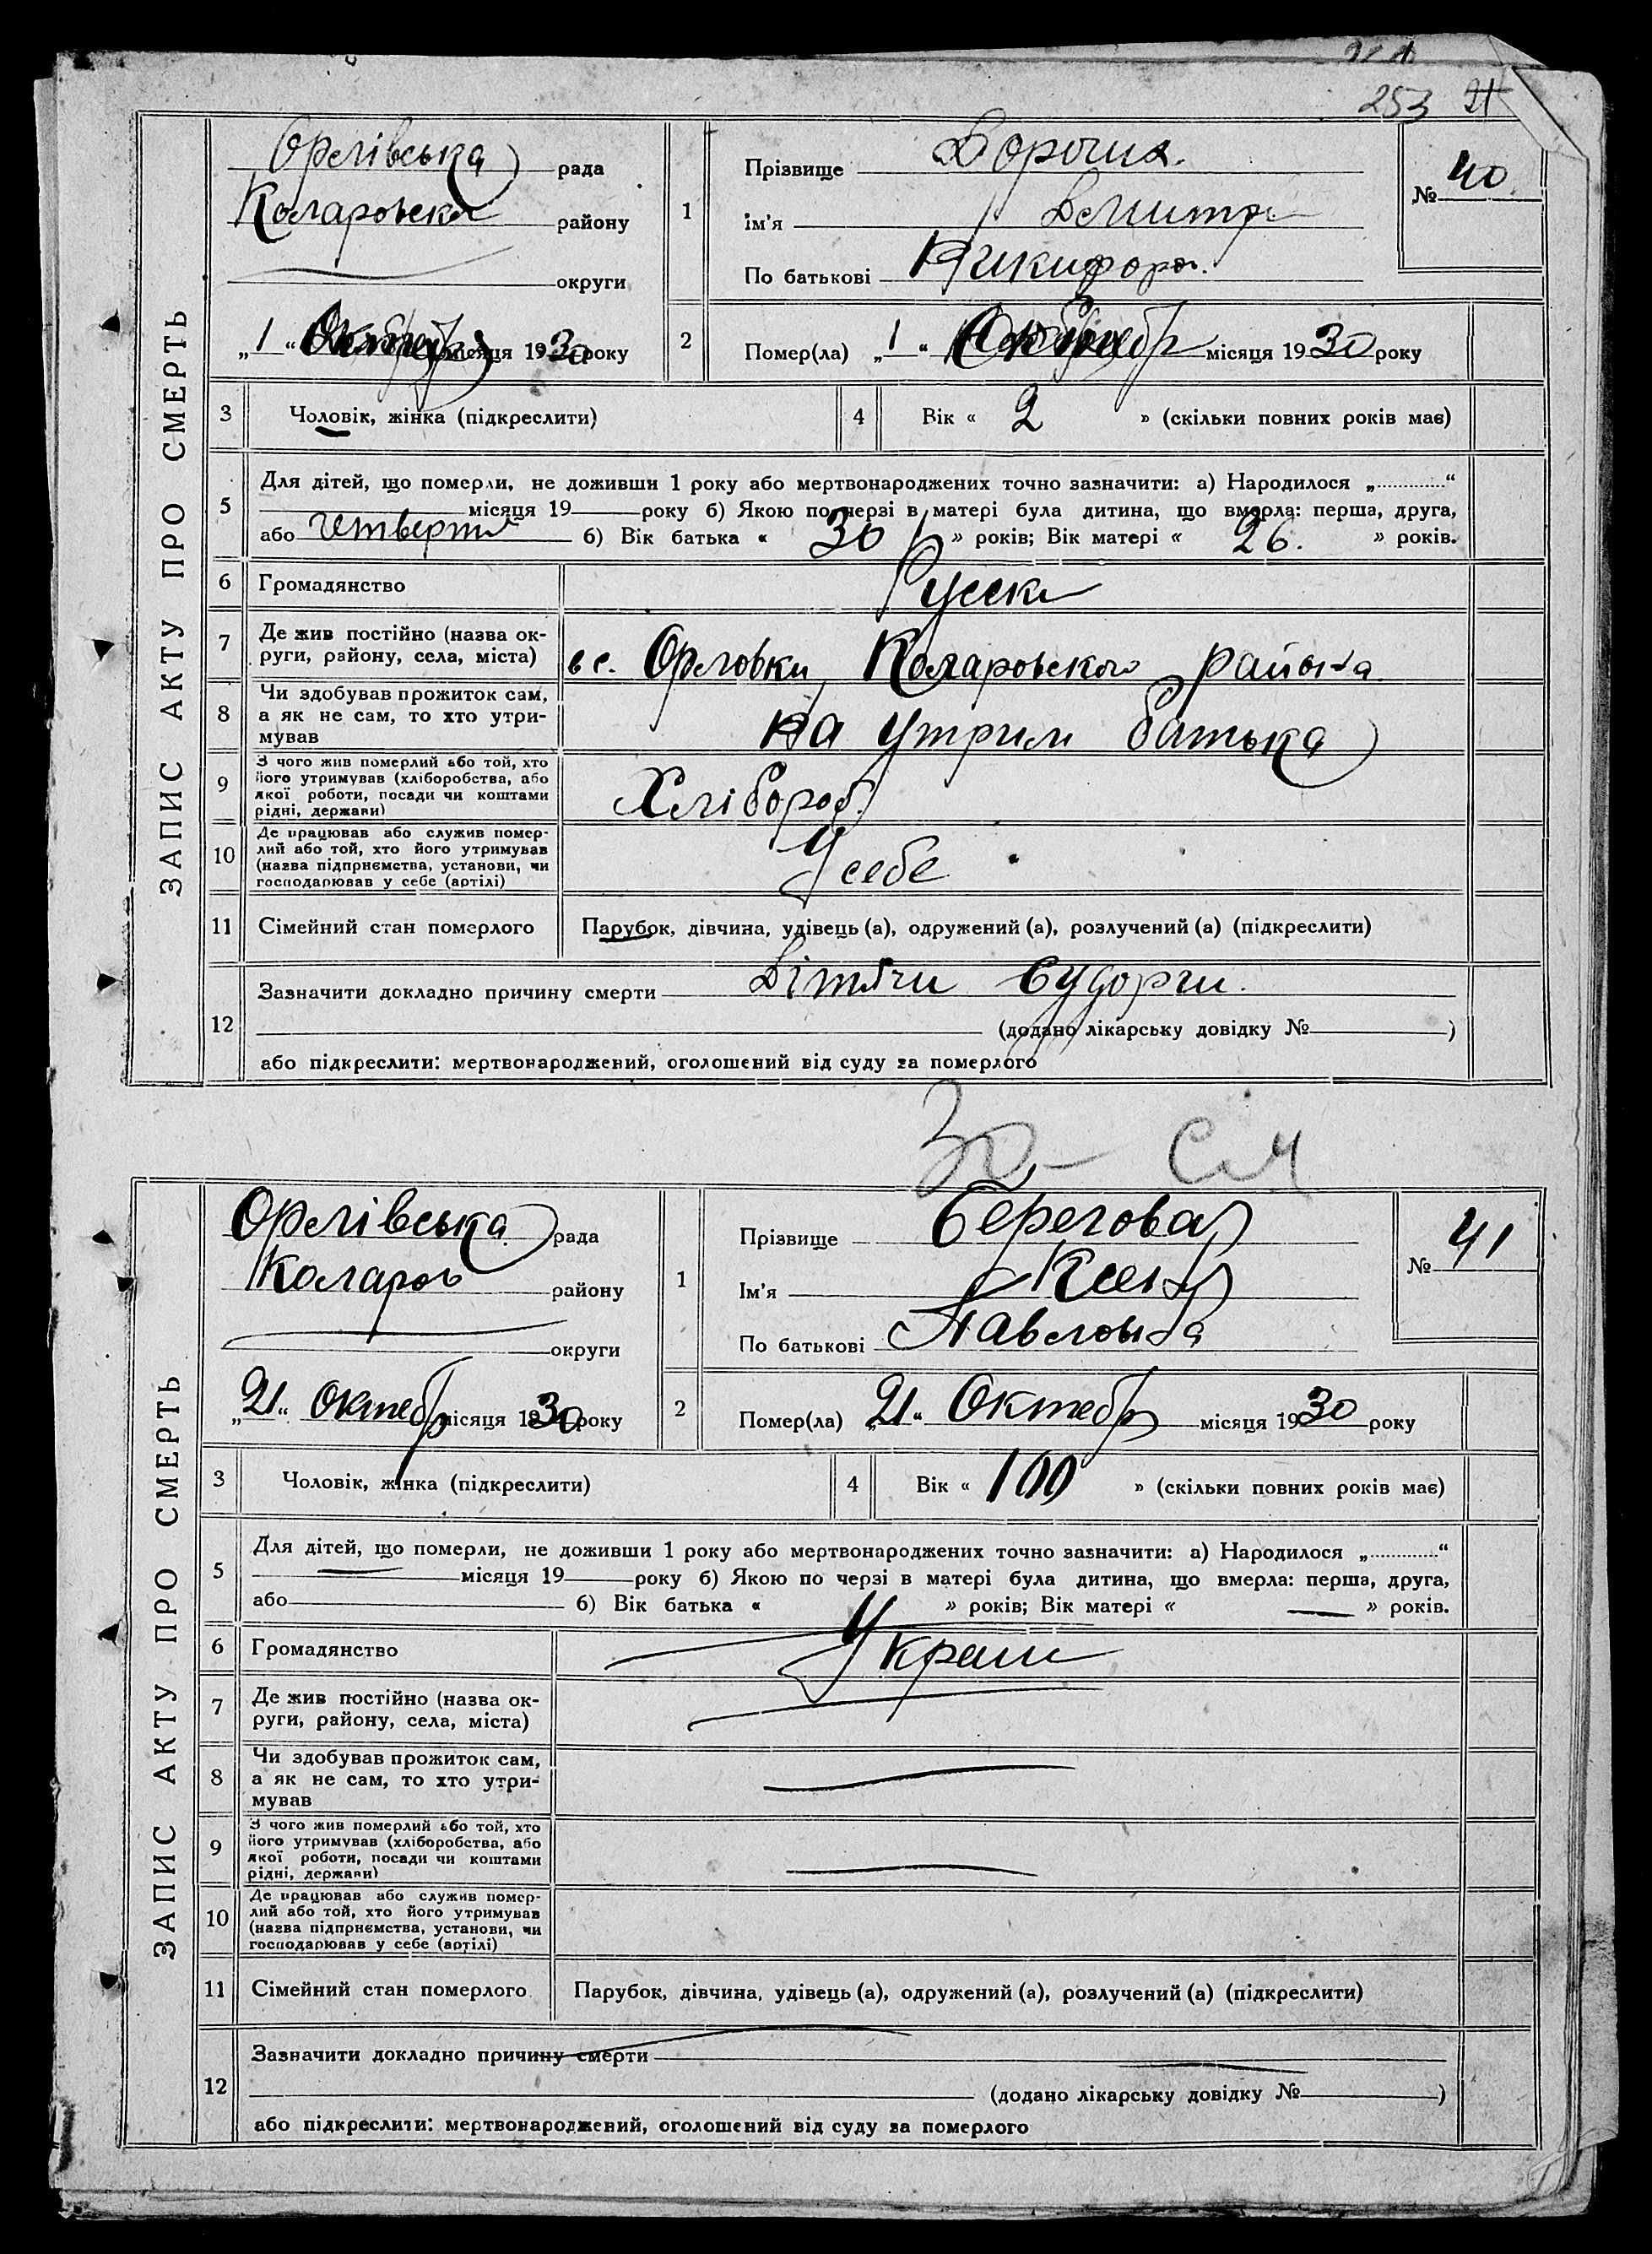 253 21
ЗАПИС АКТУ ПРО СМЕРТЬ
Орлівська рада
Коларовска району
округи
„1“ місяця 1930 року
1
Прізвище
Ім'я Дмитр
По батькові Никифоров.
№ 40
2
Помер(ла) „1“ місяця 1930 року
3 Чоловік, жінка (підкреслити)
4 Вік « 2 » (скільки повних років має)
5 Для дітей, що померли, не доживши 1 року або мертвонароджених точно зазначити: а) Народилося „............“
місяця 19 року б) Якою по черзі в матері була дитина, що вмерла: перша, друга,
або четверта б) Вік батька « 30 » років; Вік матері « 26. » років.
6 Громадянство Русски
7 Де жив постійно (назва ок-
руги, району, села, міста) в с. Орловки, Коларовского района
8 Чи здобував прожиток сам,
а як не сам, то хто утри-
мував на утрим батька
9 З чого жив померлий або той, хто
його утримував (хліборобства, або
якої роботи, посади чи коштами
рідні, держави) Хлібороб.
10 Де працював або служив помер-
лий або той, хто його утримував
(назва підприємства, установи, чи
господарював у себе (артілі) У себе
11 Сімейний стан померлого Парубок, дівчина, удівець (а), одружений (а), розлучений (а) (підкреслити)
12 Зазначити докладно причину смерти Дітячи судорги.
(додано лікарську довідку № )
або підкреслити: мертвонароджений, оголошений від суду за померлого
30-
ЗАПИС АКТУ ПРО СМЕРТЬ
Орлівська рада
Коларов району
округи
„21“ Октебр місяця 1930 року
1
Прізвище Берегова
Ім'я
По батькові Павловна
№ 41
2
Помер(ла) „21“ Октебр місяця 1930 року
3 Чоловік, жінка (підкреслити)
4 Вік « 100 » (скільки повних років має)
5 Для дітей, що померли, не доживши 1 року або мертвонароджених точно зазначити: а) Народилося „............“
місяця 19 року б) Якою по черзі в матері була дитина, що вмерла: перша, друга,
або б) Вік батька « » років; Вік матері « » років.
6 Громадянство Украи
7 Де жив постійно (назва ок-
руги, району, села, міста)
8 Чи здобував прожиток сам,
а як не сам, то хто утри-
мував
9 З чого жив померлий або той, хто
його утримував (хліборобства, або
якої роботи, посади чи коштами
рідні, держави)
10 Де працював або служив помер-
лий або той, хто його утримував
(назва підприємства, установи, чи
господарював у себе (артілі)
11 Сімейний стан померлого Парубок, дівчина, удівець (а), одружений (а), розлучений (а) (підкреслити)
12 Зазначити докладно причину смерти
(додано лікарську довідку № )
або підкреслити: мертвонароджений, оголошений від суду за померлого